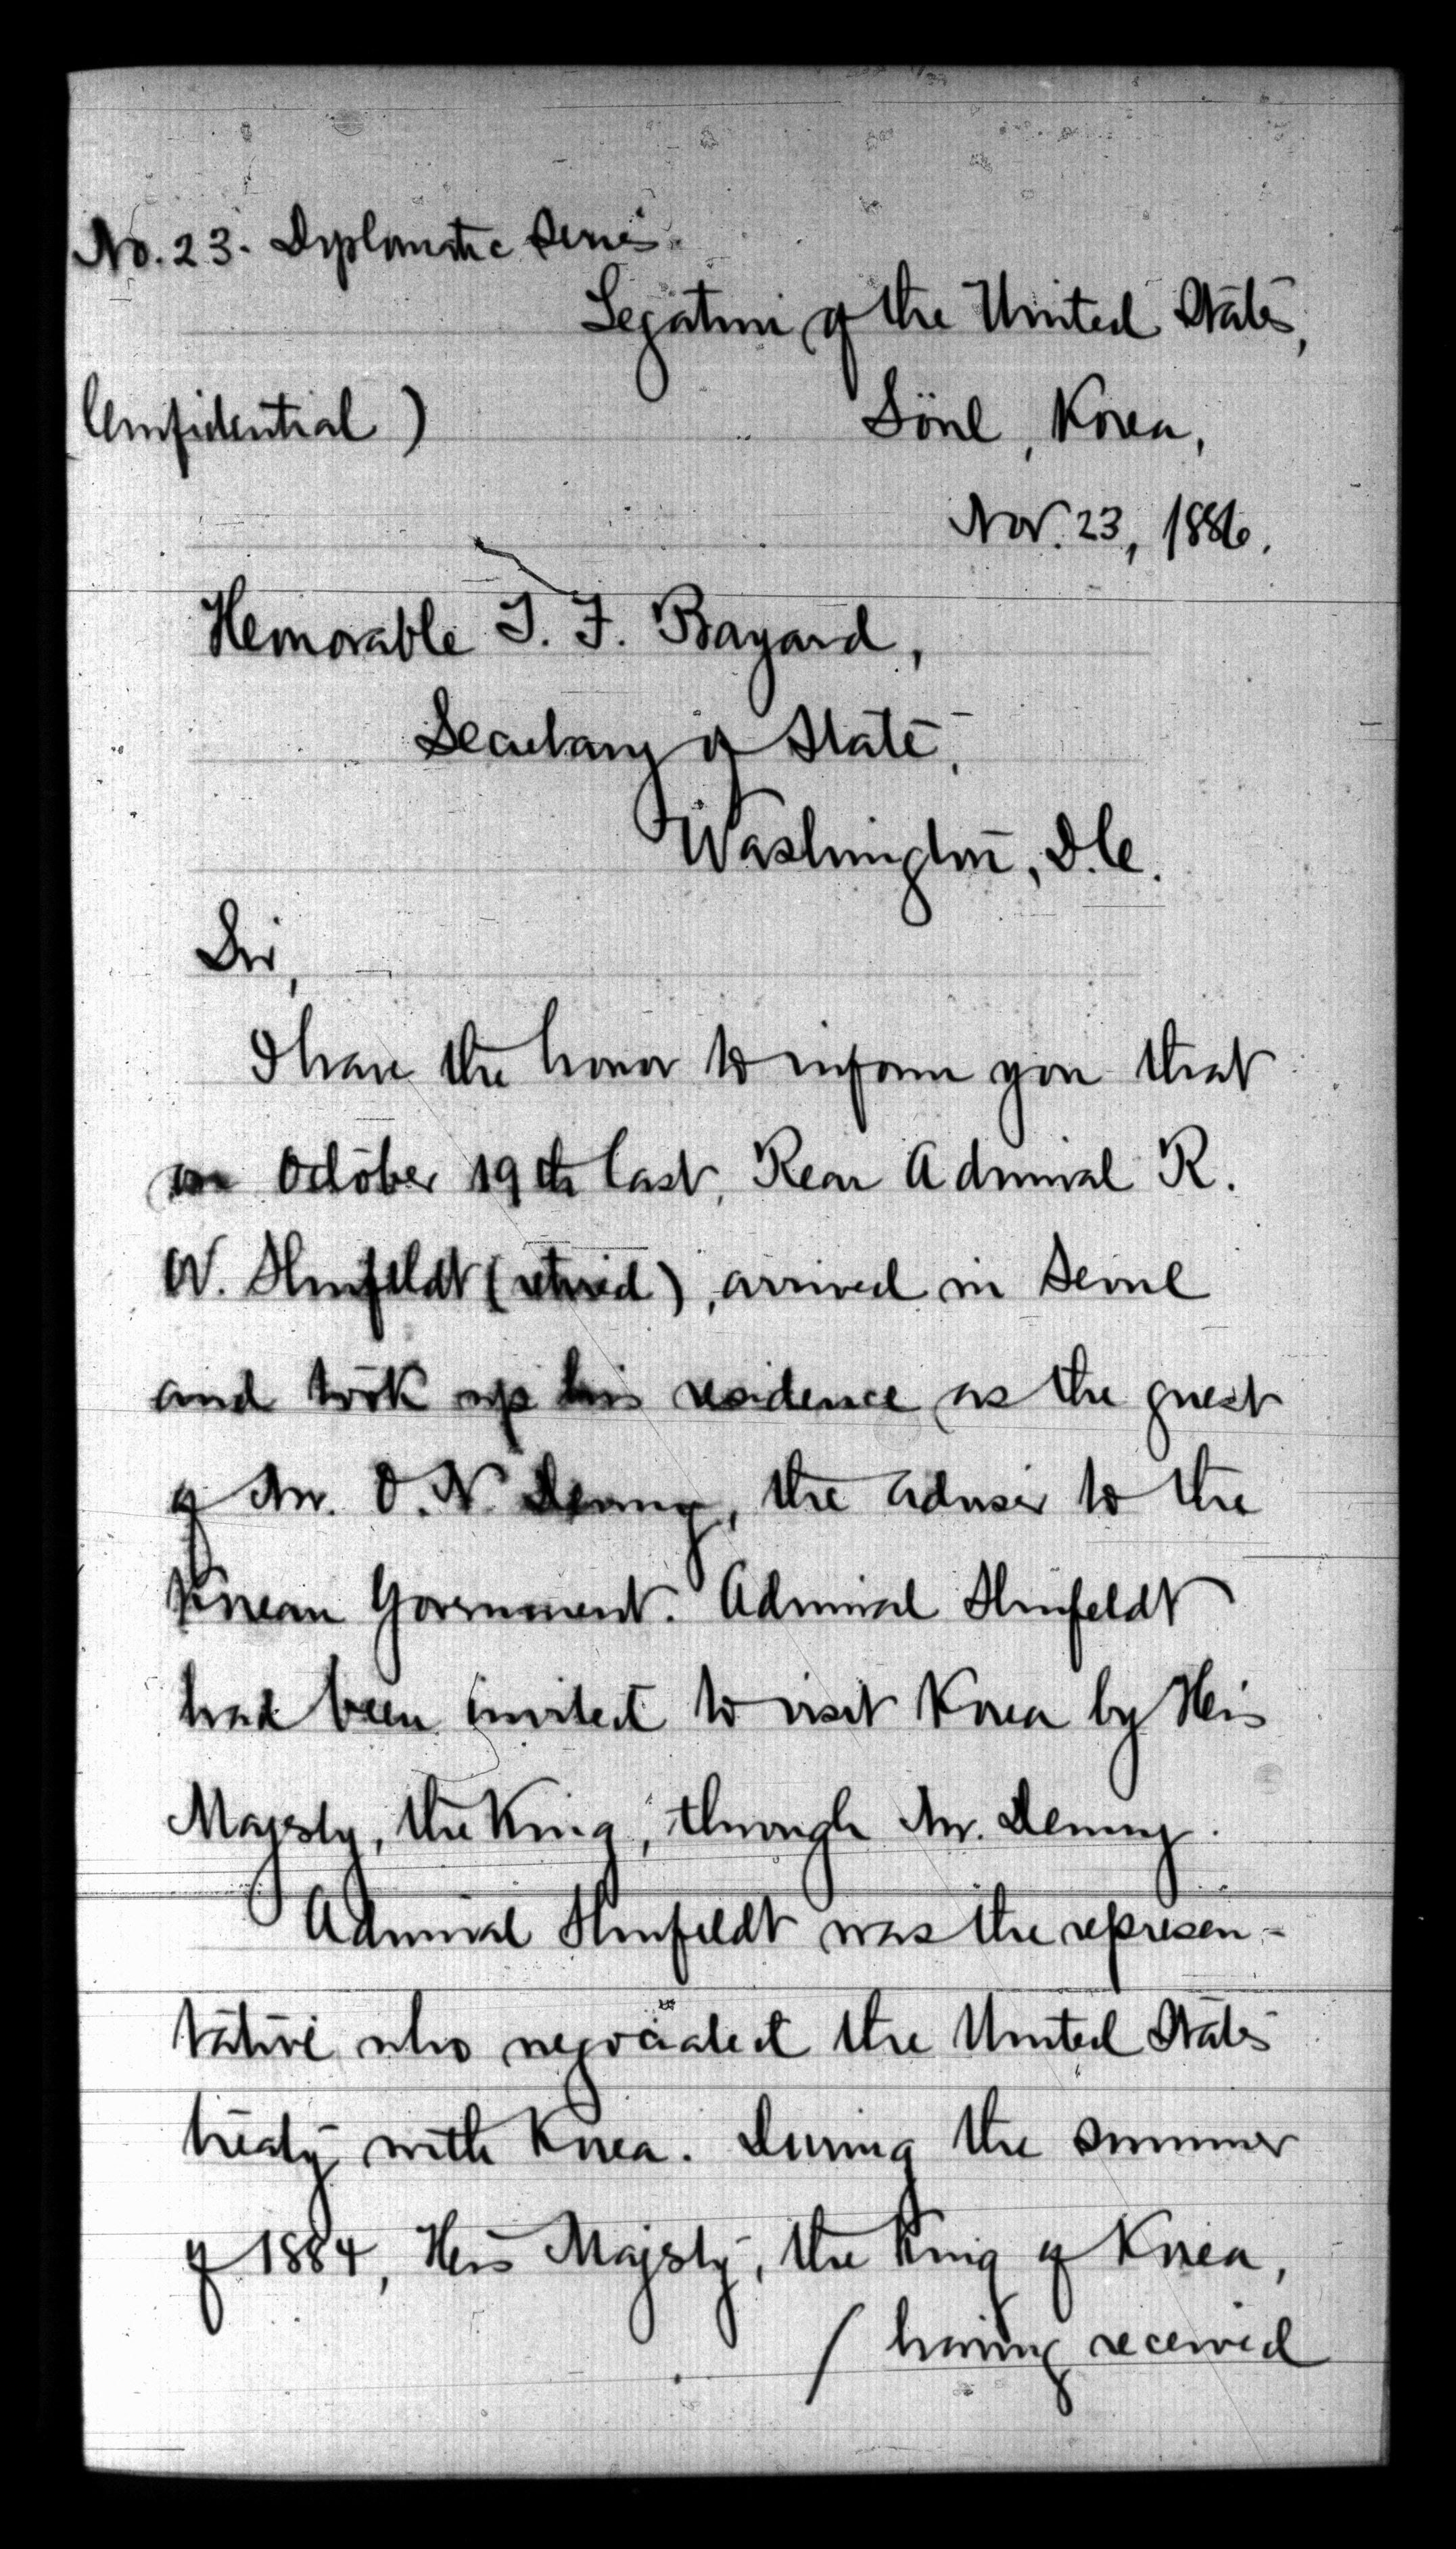 No. 23. Diplomatic Series.
Legation of the United States,
Confidential)
Söul, Korea,
Nov. 23, 1886.
Honorable T. F. Bayard,
Secretary of State,
Washington, D.C.
Sir,
I have the honor to inform you that
on October 19th last, Rear Admiral R.
W. Shufeldt (retired), arrived in Seoul
and took up his residence as the guest
of Mr. O. N. Denny, the adviser to the
Korean Government. Admiral Shufeldt
had been invited to visit Korea by His
Majesty, the King, through Mr. Denny.
Admiral Shufeldt was the represen-
tative who negociated the United States
treaty with Korea. During the summer
of 1884, His Majesty, the King of Korea,
/ having received